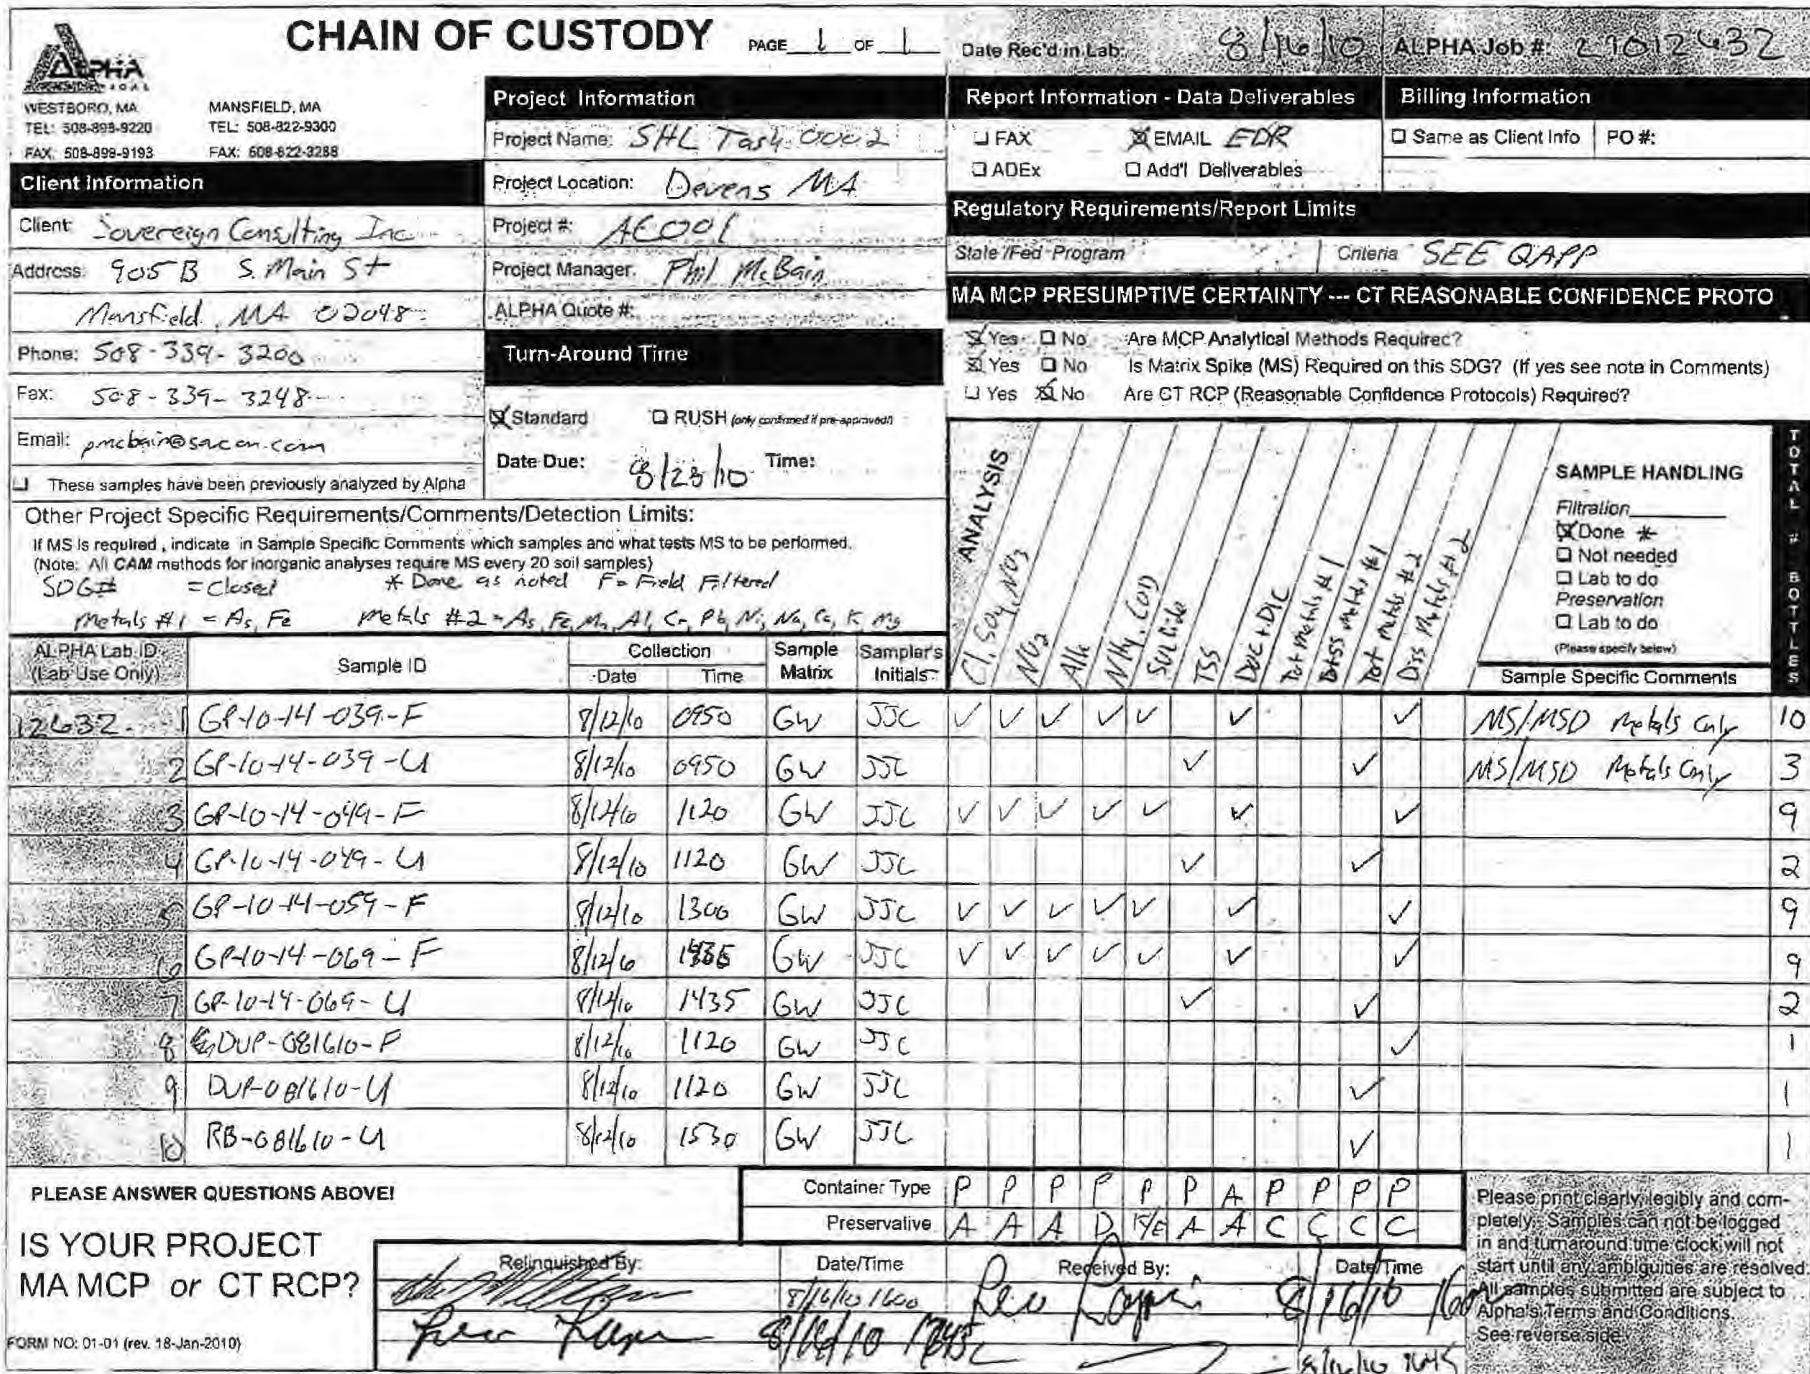 CHAIN OF CUSTODY PAGE 1 OF 1
Date Rec'd in Lab: 8/16/10 ALPHA Job #:
ALPHA
WESTBORO, MA MANSFIELD, MA
TEL: 508-898-9220 TEL: 508-822-9300
FAX: 508-898-9193 FAX: 508-822-3288
Client Information
Client: Sovereign Consulting Inc
Address: 905B S. Main St
Mansfield, MA 02048
Phone: 508-339-3200
Fax: 508-339-3248
Email:
These samples have been previously analyzed by Alpha
Project Information
Project Name: SHL Task 0002
Project Location: Devens MA
Project #:
Project Manager: Phil McBain
ALPHA Quote #:
Turn-Around Time
Standard RUSH (only confirmed if pre-approved!)
Date Due: 8/23/10 Time:
Report Information - Data Deliverables
FAX EMAIL
ADEx Add'l Deliverables
Billing Information
Same as Client Info PO #:
Regulatory Requirements/Report Limits
State /Fed Program Criteria SEE QAPP
MA MCP PRESUMPTIVE CERTAINTY --- CT REASONABLE CONFIDENCE PROTO
Yes No Are MCP Analytical Methods Required?
Yes No Is Matrix Spike (MS) Required on this SDG? (If yes see note in Comments)
Yes No Are CT RCP (Reasonable Confidence Protocols) Required?
Other Project Specific Requirements/Comments/Detection Limits:
If MS is required , indicate in Sample Specific Comments which samples and what tests MS to be performed.
(Note: All CAM methods for inorganic analyses require MS every 20 soil samples)
SDG# = Closed * Done as noted F = Field Filtered
Metals #1 = As, Fe Metals #2 = As, Fe, Mn, Al, Cr, Pb, Ni, Na, Ca, K, Mg
ANALYSIS
Cl, SO4, NO3
NO2
Alk
NH4, COD
Sulfide
TSS
DOC + DIC
Tot Metals #1
Diss Metals #1
Tot Metals #2
Diss Metals #2
SAMPLE HANDLING
Filtration
Done *
Not needed
Lab to do
Preservation
Lab to do
(Please specify below)
TOTAL # BOTTLES
ALPHA Lab ID (Lab Use Only) Sample ID Collection Date Time Sample Matrix Sampler's Initials Sample Specific Comments
12632 - 1 GP-10-14-039-F 8/12/10 0950 GW JJC ✓ ✓ ✓ ✓ ✓ ✓ ✓ MS/MSD Metals Only 10
2 GP-10-14-039-U 8/12/10 0950 GW JJC ✓ ✓ MS/MSD Metals Only 3
3 GP-10-14-049-F 8/12/10 1120 GW JJC ✓ ✓ ✓ ✓ ✓ ✓ ✓ 9
4 GP-10-14-049-U 8/12/10 1120 GW JJC ✓ ✓ 2
5 GP-10-14-059-F 8/12/10 1300 GW JJC ✓ ✓ ✓ ✓ ✓ ✓ ✓ 9
6 GP-10-14-069-F 8/12/10 GW JJC ✓ ✓ ✓ ✓ ✓ ✓ ✓ 9
7 GP-10-14-069-U 8/12/10 1435 GW JJC ✓ ✓ 2
8 DUP-081610-F 8/12/10 1120 GW JJC ✓ 1
9 DUP-081610-U 8/12/10 1120 GW JJC ✓ 1
10 RB-081610-U 8/12/10 1530 GW JJC ✓ 1
PLEASE ANSWER QUESTIONS ABOVE!
IS YOUR PROJECT
MA MCP or CT RCP?
FORM NO: 01-01 (rev. 18-Jan-2010)
Container Type P P P P P P A P P P P
Preservative A A A D A A C C C C
Relinquished By: Date/Time Received By: Date/Time
8/16/10 1600 8/16/10
8/16/10
Please print clearly, legibly and com-
pletely. Samples can not be logged
in and turnaround time clock will not
start until any ambiguities are resolved.
All samples submitted are subject to
Alpha's Terms and Conditions.
See reverse side.